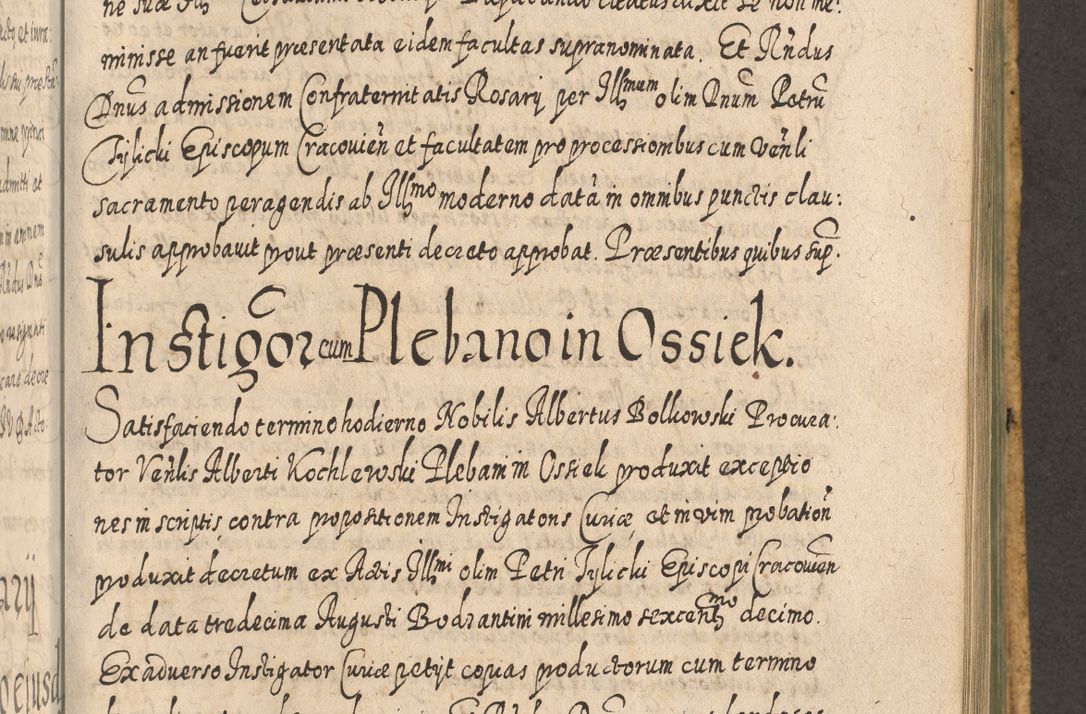 minisse an fuerit præsentata eidem facultas supranominata. Et R̃ndus
Dnus admissionem Confraternitatis Rosarij per Illmum olim Dnum Petrũ
Tylicki Episcopum Cracovieñ et facultatem pro processionibus cum Veñli
sacramento peragendis ab Illmo moderno datã in omnibus punctis clau:
sulis approbavit prout præsenti decreto approbat. Præsentibus quibus sup.
Instigor cum Plebano in Ossiek.
Satisfaciendo termino hodierno Nobilis Albertus Bolkowski Procura:
tor Veñlis Alberti Kochlewski Plebani in Ossiek produxit exceptio
nes in scriptis contra propositionem Instigatoris Curiæ et in vim probatioñ
produxit decretum ex Actis Illmi olim Petri Tylicki Episcopi Cracovien
de data tredecima Augusti Bodzantini millesimo sexcentmo decimo.
Ex adverso Instigator Curiæ petijt copias productorum cum termino